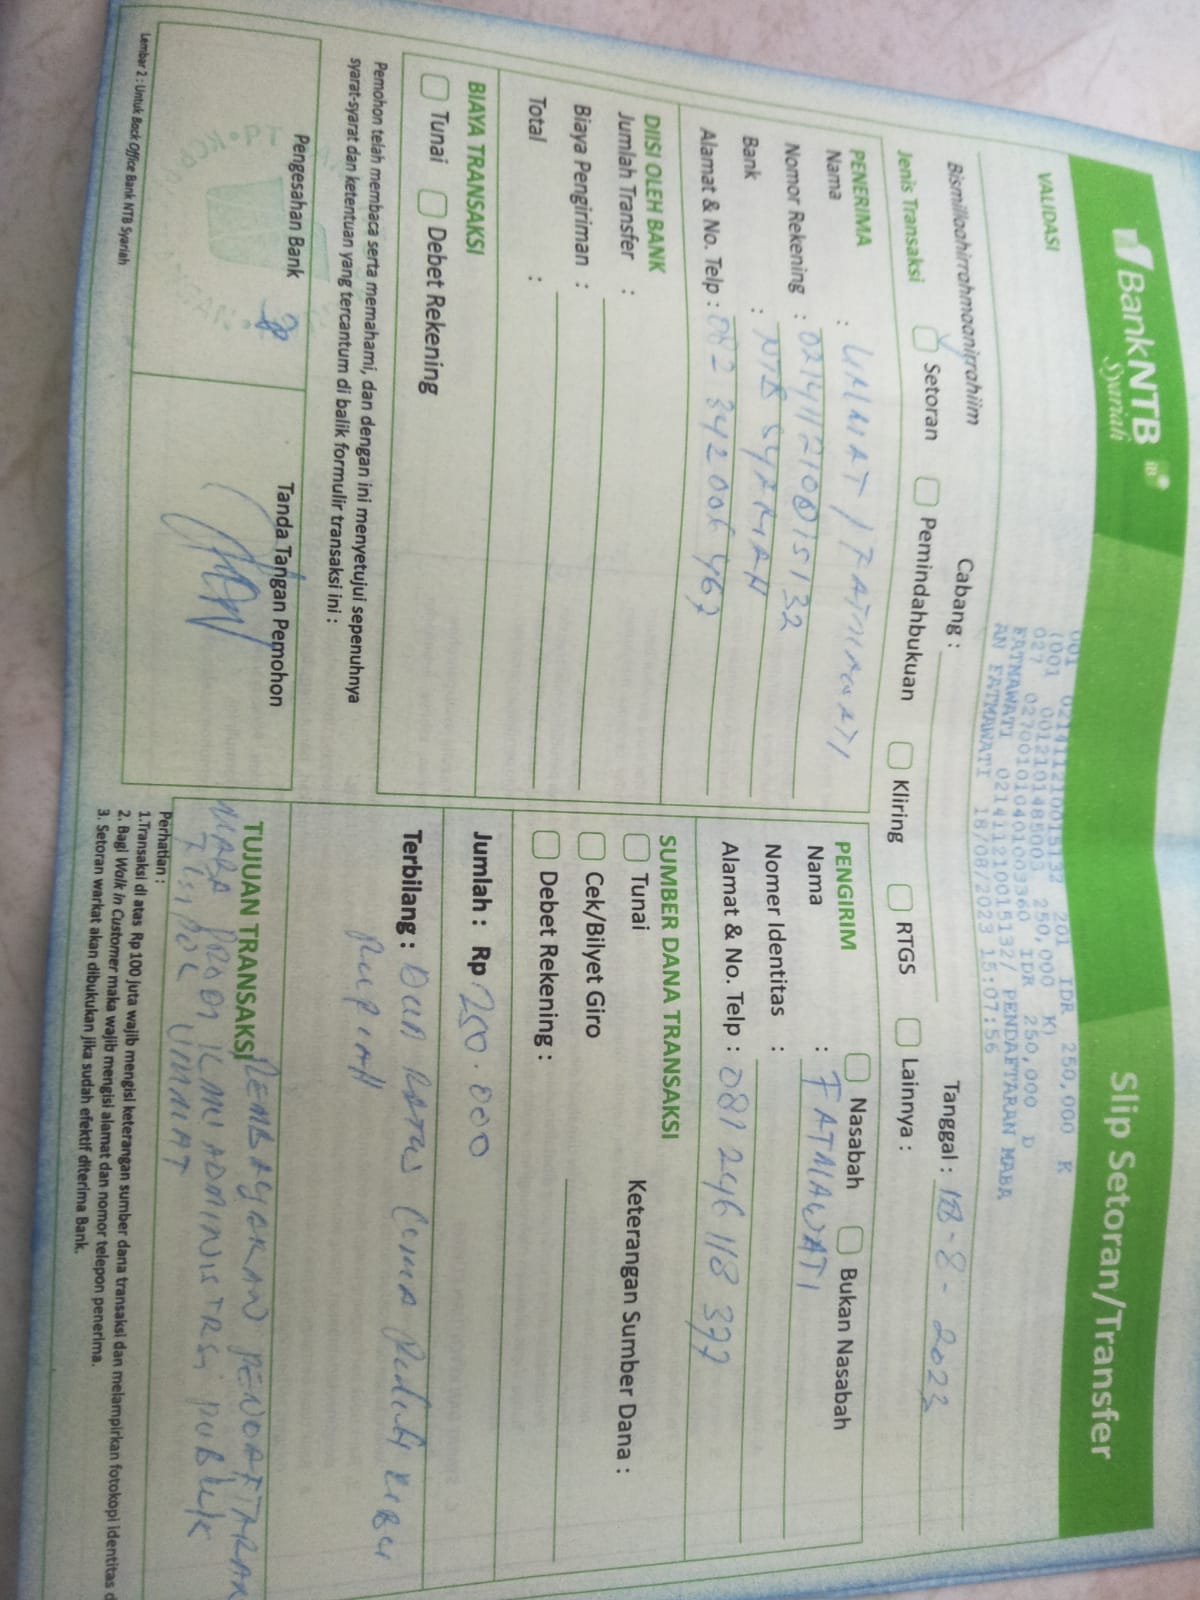 BankNTB
Syariah
iB
Slip Setoran/Transfer
VALIDASI
001 021411210015132 201 IDR 250,000 K
(001 0012101485003 250,000 K)
027 0270010104010033360 IDR 250,000 D
FATMAWATI 021411210015132/ PENDAFTARAN MABA
AN FATMAWATI 18/08/2023 15:07:56
Bismillaahirrahmaanirrahiim
Cabang :
Tanggal : 18-8-2023
Jenis Transaksi
Setoran
Pemindahbukuan
Kliring
RTGS
Lainnya :
PENERIMA
Nama : UMMAT / FATMAWATI
Nomor Rekening : 021411210015132
Bank : NTB SYARIAH
Alamat & No. Telp : 082 342 006 467
PENGIRIM
Nasabah
Bukan Nasabah
Nama : FATMAWATI
Nomer Identitas :
Alamat & No. Telp : 081 246 118 377
DIISI OLEH BANK
Jumlah Transfer :
Biaya Pengiriman :
Total :
SUMBER DANA TRANSAKSI
Tunai
Cek/Bilyet Giro
Debet Rekening :
Keterangan Sumber Dana :
BIAYA TRANSAKSI
Tunai
Debet Rekening
Jumlah : Rp 250.000
Terbilang : Dua Ratus Lima Puluh Ribu
Rupiah
Pemohon telah membaca serta memahami, dan dengan ini menyetujui sepenuhnya
syarat-syarat dan ketentuan yang tercantum di balik formulir transaksi ini :
Pengesahan Bank
Tanda Tangan Pemohon
TUJUAN TRANSAKSI PEMBAYARAN PENDAFTARAN
MABA PRODI ILMU ADMINISTRSI PUBLIK
FISIPOL UMMAT
Perhatian :
1.Transaksi di atas Rp 100 juta wajib mengisi keterangan sumber dana transaksi dan melampirkan fotokopi identitas d
2. Bagi Walk in Customer maka wajib mengisi alamat dan nomor telepon penerima.
3. Setoran warkat akan dibukukan jika sudah efektif diterima Bank.
Lembar 2 : Untuk Back Office Bank NTB Syariah